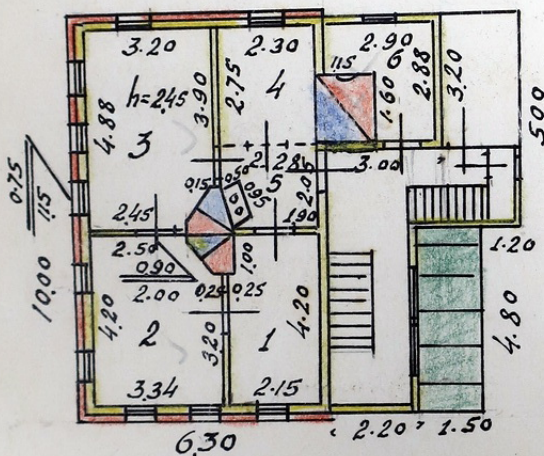 3.20
2.30
2.90
6
1.15
h=2.45
3.90
2.75
4
1.60
2.88
3.20
5.00
4.88
3
3.00
5
2.05
0.15
0.50
0.95
1.90
0.75
1.15
2.45
2.50
0.90
2.00
1.00
0.25
0.25
1.20
10.00
4.20
2
3.20
1
4.20
4.80
3.34
2.15
6.30
2.20
1.50